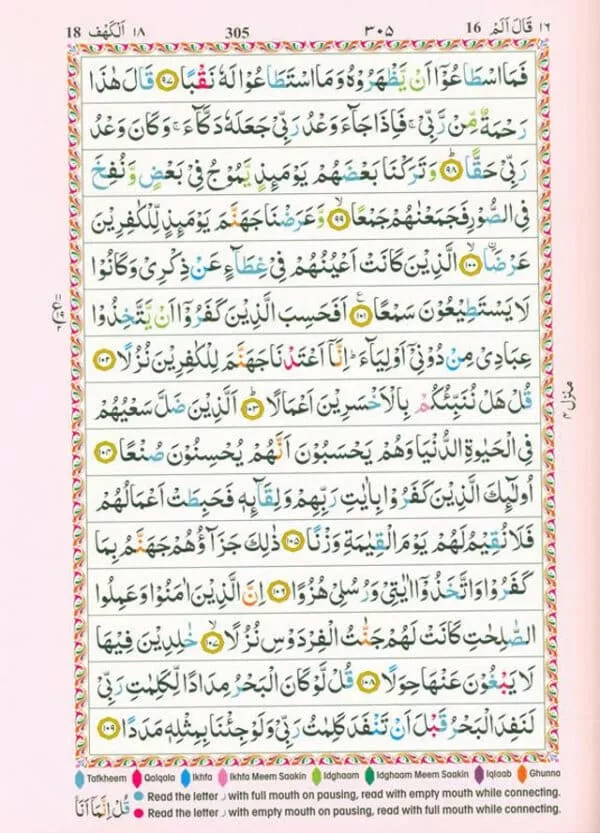 18 اَلْكَهْف ١٨ 305 ٣٠٥ 16 قَالَ اَلَمْ ١٦
فَمَا اسْطَاعُوْٓا اَنْ يَّظْهَرُوْهُ وَمَا اسْتَطَاعُوْا لَهٗ نَقْبًا ﴿٩٧﴾ قَالَ هٰذَا
رَحْمَةٌ مِّنْ رَّبِّيْ ۚ فَاِذَا جَآءَ وَعْدُ رَبِّيْ جَعَلَهٗ دَكَّآءَ ۚ وَكَانَ وَعْدُ
رَبِّيْ حَقًّا ﴿٩٨﴾ؕ وَتَرَكْنَا بَعْضَهُمْ يَوْمَئِذٍ يَّمُوْجُ فِيْ بَعْضٍ وَّنُفِخَ
فِي الصُّوْرِ فَجَمَعْنٰهُمْ جَمْعًا ﴿٩٩﴾ۙ وَّعَرَضْنَا جَهَنَّمَ يَوْمَئِذٍ لِّلْكٰفِرِيْنَ
عَرْضًا ﴿١٠٠﴾ۙ الَّذِيْنَ كَانَتْ اَعْيُنُهُمْ فِيْ غِطَآءٍ عَنْ ذِكْرِيْ وَكَانُوْا
لَا يَسْتَطِيْعُوْنَ سَمْعًا ﴿١٠١﴾ع اَفَحَسِبَ الَّذِيْنَ كَفَرُوْٓا اَنْ يَّتَّخِذُوْا
عِبَادِيْ مِنْ دُوْنِيْٓ اَوْلِيَآءَ ؕ اِنَّآ اَعْتَدْنَا جَهَنَّمَ لِلْكٰفِرِيْنَ نُزُلًا ﴿١٠٢﴾
قُلْ هَلْ نُنَبِّئُكُمْ بِالْاَخْسَرِيْنَ اَعْمَالًا ﴿١٠٣﴾ؕ اَلَّذِيْنَ ضَلَّ سَعْيُهُمْ
فِي الْحَيٰوةِ الدُّنْيَا وَهُمْ يَحْسَبُوْنَ اَنَّهُمْ يُحْسِنُوْنَ صُنْعًا ﴿١٠٤﴾
اُولٰٓئِكَ الَّذِيْنَ كَفَرُوْا بِاٰيٰتِ رَبِّهِمْ وَلِقَآئِهٖ فَحَبِطَتْ اَعْمَالُهُمْ
فَلَا نُقِيْمُ لَهُمْ يَوْمَ الْقِيٰمَةِ وَزْنًا ﴿١٠٥﴾ ذٰلِكَ جَزَآؤُهُمْ جَهَنَّمُ بِمَا
كَفَرُوْا وَاتَّخَذُوْٓا اٰيٰتِيْ وَرُسُلِيْ هُزُوًا ﴿١٠٦﴾ اِنَّ الَّذِيْنَ اٰمَنُوْا وَعَمِلُوا
الصّٰلِحٰتِ كَانَتْ لَهُمْ جَنّٰتُ الْفِرْدَوْسِ نُزُلًا ﴿١٠٧﴾ۙ خٰلِدِيْنَ فِيْهَا
لَا يَبْغُوْنَ عَنْهَا حِوَلًا ﴿١٠٨﴾ قُلْ لَّوْ كَانَ الْبَحْرُ مِدَادًا لِّكَلِمٰتِ رَبِّيْ
لَنَفِدَ الْبَحْرُ قَبْلَ اَنْ تَنْفَدَ كَلِمٰتُ رَبِّيْ وَلَوْ جِئْنَا بِمِثْلِهٖ مَدَدًا ﴿١٠٩﴾
١١
ع ١٩
٢
منزل ٤
Tafkheem Qalqala Ikhfa Ikhfa Meem Saakin Idghaam Idghaam Meem Saakin Iqlaab Ghunna
Read the letter ر with full mouth on pausing, read with empty mouth while connecting.
Read the letter ر with empty mouth on pausing, read with full mouth while connecting.
قُلْ اِنَّمَآ اَنَا